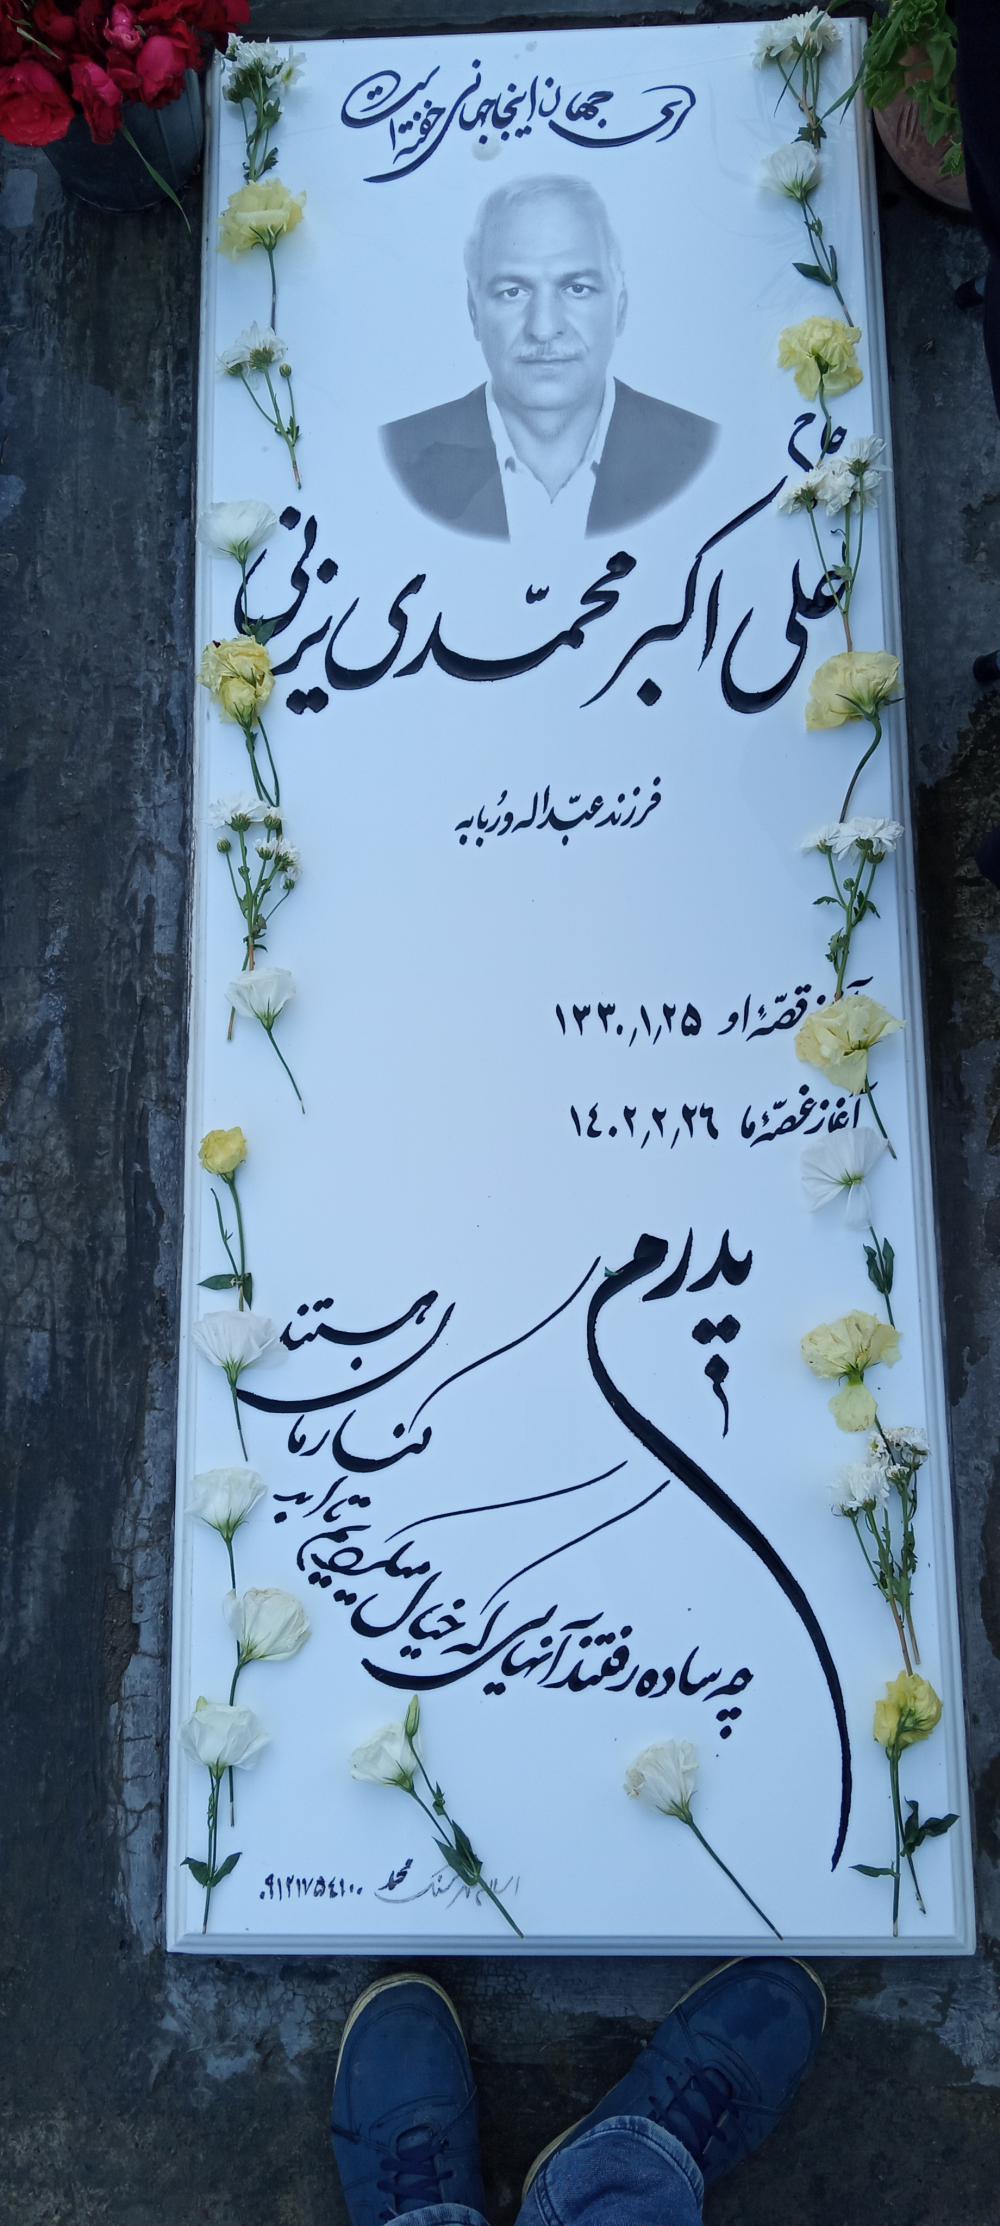 ای جهان اینجا جهانی خفته است
حاج
علی اکبر محمّدی یزنی
فرزند عبّداله و رُبابه
آغاز قصّهٔ او ۱۳۳۰,۱,۲۵
آغاز غصّهٔ ما ۱٤۰۲,۲,۲٦
پدرم
چه ساده رفتند آنهایی که خیال میکردیم تا ابد
کنار ما
هستند
محمد ۰۹۱۲۱۷۵٤۱۰۰